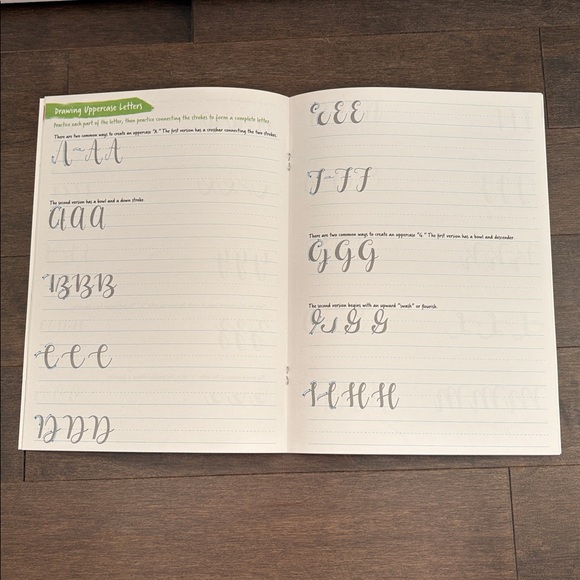 Drawing Uppercase Letters
Practice each part of the letter, then practice connecting the strokes to form a complete letter.
There are two common ways to create an uppercase "A." The first version has a crossbar connecting the two strokes.
A A A
The second version has a bowl and a down stroke.
a a a
B B B
C C C
D D D
E E E
F F F
There are two common ways to create an uppercase "G." The first version has a bowl and descender.
G G G
The second version begins with an upward "swash" or flourish.
G G G
H H H